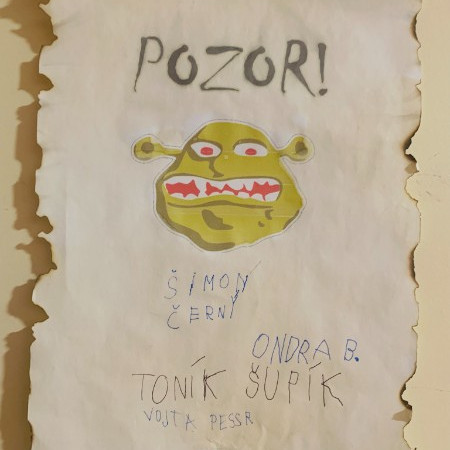 POZOR!
ŠIMON
ČERNÝ
ONDRA B.
TONÍK ŠUPÍK
VOJTA PESSR